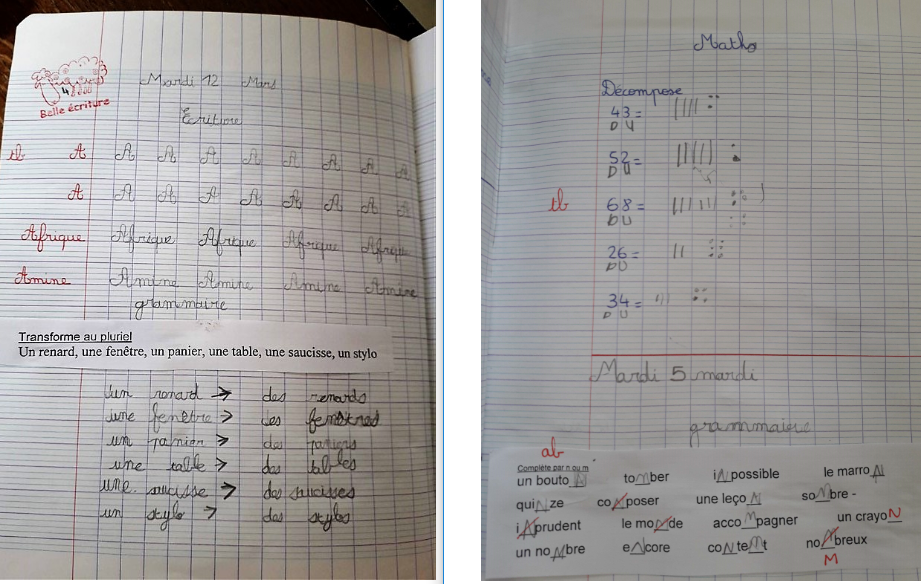 4
Belle écriture
Mardi 12 Mars
Ecriture
tb A A A A A A A A A
A A A A A A A A A
Afrique Afrique Afrique Afrique Afrique
Amine Amine Amine Amine Amine
grammaire
Transforme au pluriel
Un renard, une fenêtre, un panier, une table, une saucisse, un stylo
un renard → des renards
une fenêtre → des fenêtres
un panier → des paniers
une table → des tables
une saucisse → des saucisses
un stylo → des stylos
Maths
Décompose
43 =
D U
52 =
D U
tb 68 =
D U
26 =
D U
34 =
D U
Mardi 5 mardi
grammaire
ab
Complète par n ou m
un bouton tomber inpossible le marron
quinze conposer une leçon sombre -
inprudent le monde accompagner un crayon
un nombre encore contemt nonbreux
M